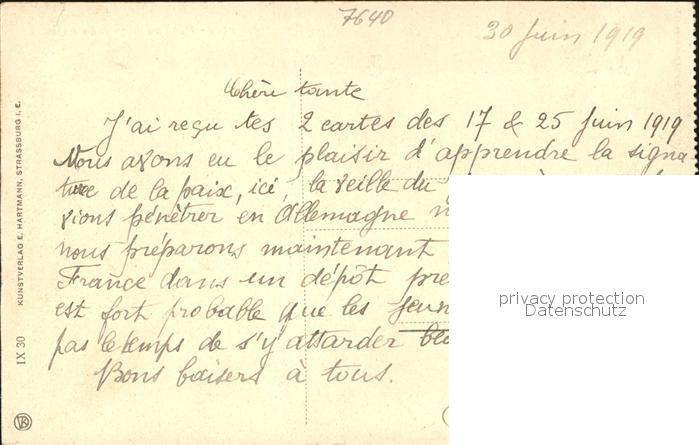 7640
30 Juin 1919
Chère tante
J'ai reçu tes 2 cartes des 17 & 25 Juin 1919
Nous avons eu le plaisir d'apprendre la signa
ture de la paix, ici, la veille du
vions pénétrer en Allemagne
nous préparons maintenant
France dans un dépôt pre
est fort probable que les jeun
pas le temps de s'y attarder
Bons baisers à tous.
privacy protection
Datenschutz
KUNSTVERLAG E. HARTMANN, STRASSBURG I. E.
IX 30